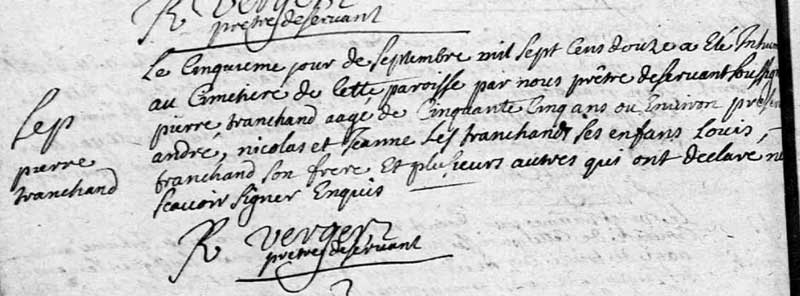 R Verger
prêtre deservant
Le Cinquieme jour de Septembre mil Sept Cens douze a Eté Inhumé
au Cimetiere de Cette paroisse par nous prêtre deservant soussigné
pierre tranchand aagé de Cinquante Cinq ans ou Environ presens
andré, nicolas et Jeanne Les tranchands Ses enfans Louis
tranchand Son frere Et plusieurs autres qui ont declaré ne
Scavoir Signer Enquis
Sep
pierre
tranchand
R Verger
prêtre deservant